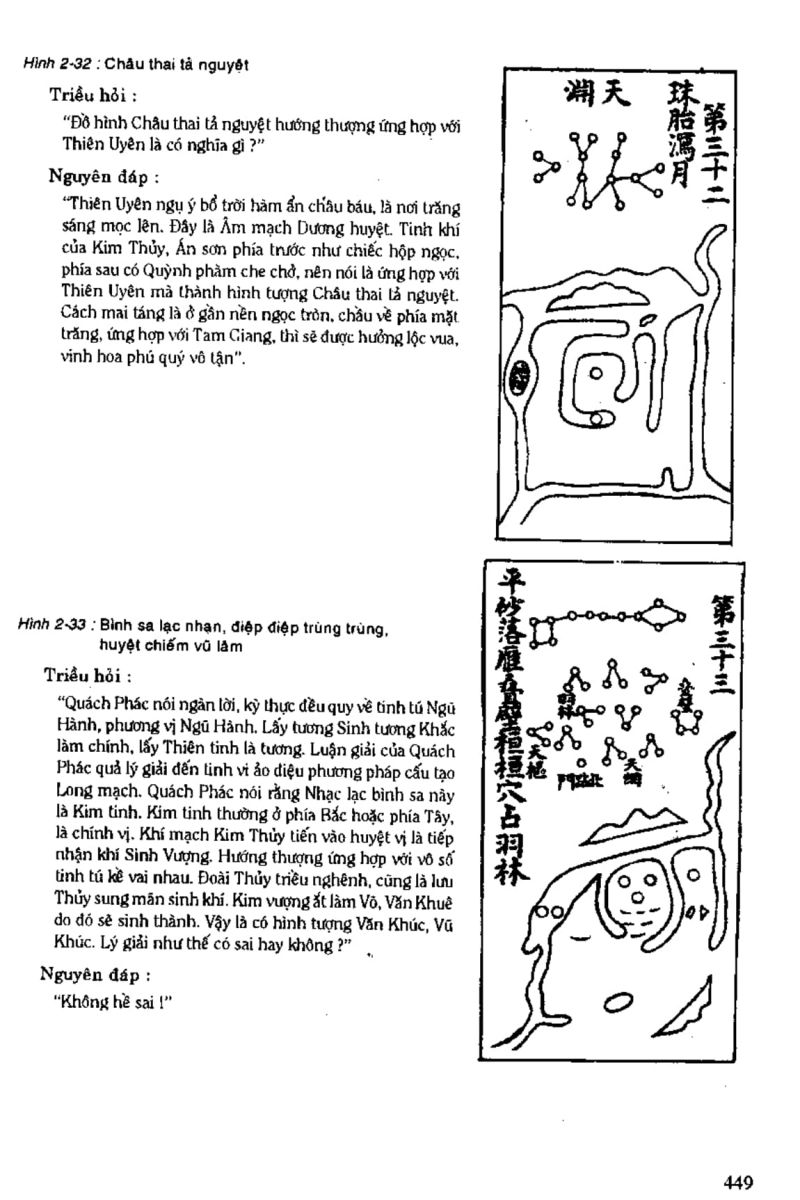 Hình 2-32 : Châu thai tả nguyệt
Triều hỏi :
"Đồ hình Châu thai tả nguyệt hướng thượng ứng hợp với
Thiên Uyên là có nghĩa gì ?"
Nguyên đáp :
"Thiên Uyên ngụ ý bổ trời hàm ẩn châu báu, là nơi trăng
sáng mọc lên. Đây là Âm mạch Dương huyệt. Tinh khí
của Kim Thủy, Án sơn phía trước như chiếc hộp ngọc,
phía sau có Quỳnh phàm che chở, nên nói là ứng hợp với
Thiên Uyên mà thành hình tượng Châu thai tả nguyệt.
Cách mai táng là ở gần nền ngọc tròn, chầu về phía mặt
trăng, ứng hợp với Tam Giang, thì sẽ được hưởng lộc vua,
vinh hoa phú quý vô tận".
第三十二
珠胎瀉月
天淵
Hình 2-33 : Bình sa lạc nhạn, điệp điệp trùng trùng,
huyệt chiếm vũ lâm
Triều hỏi :
"Quách Phác nói ngàn lời, kỳ thực đều quy về tinh tú Ngũ
Hành, phương vị Ngũ Hành. Lấy tương Sinh tương Khắc
làm chính, lấy Thiên tinh là tương. Luận giải của Quách
Phác quả lý giải đến tinh vi ảo diệu phương pháp cấu tạo
Long mạch. Quách Phác nói rằng Nhạc lạc bình sa này
là Kim tinh. Kim tinh thường ở phía Bắc hoặc phía Tây,
là chính vị. Khí mạch Kim Thủy tiến vào huyệt vị là tiếp
nhận khí Sinh Vượng. Hướng thượng ứng hợp với vô số
tinh tú kề vai nhau. Đoài Thủy triều nghênh, cũng là lưu
Thủy sung mãn sinh khí. Kim vượng ắt làm Võ, Văn Khuê
do đó sẽ sinh thành. Vậy là có hình tượng Văn Khúc, Vũ
Khúc. Lý giải như thế có sai hay không ?"
Nguyên đáp :
"Không hề sai !"
第三十三
平砂落雁疊疊穴占羽林
羽林
天
天綱
北 門
449